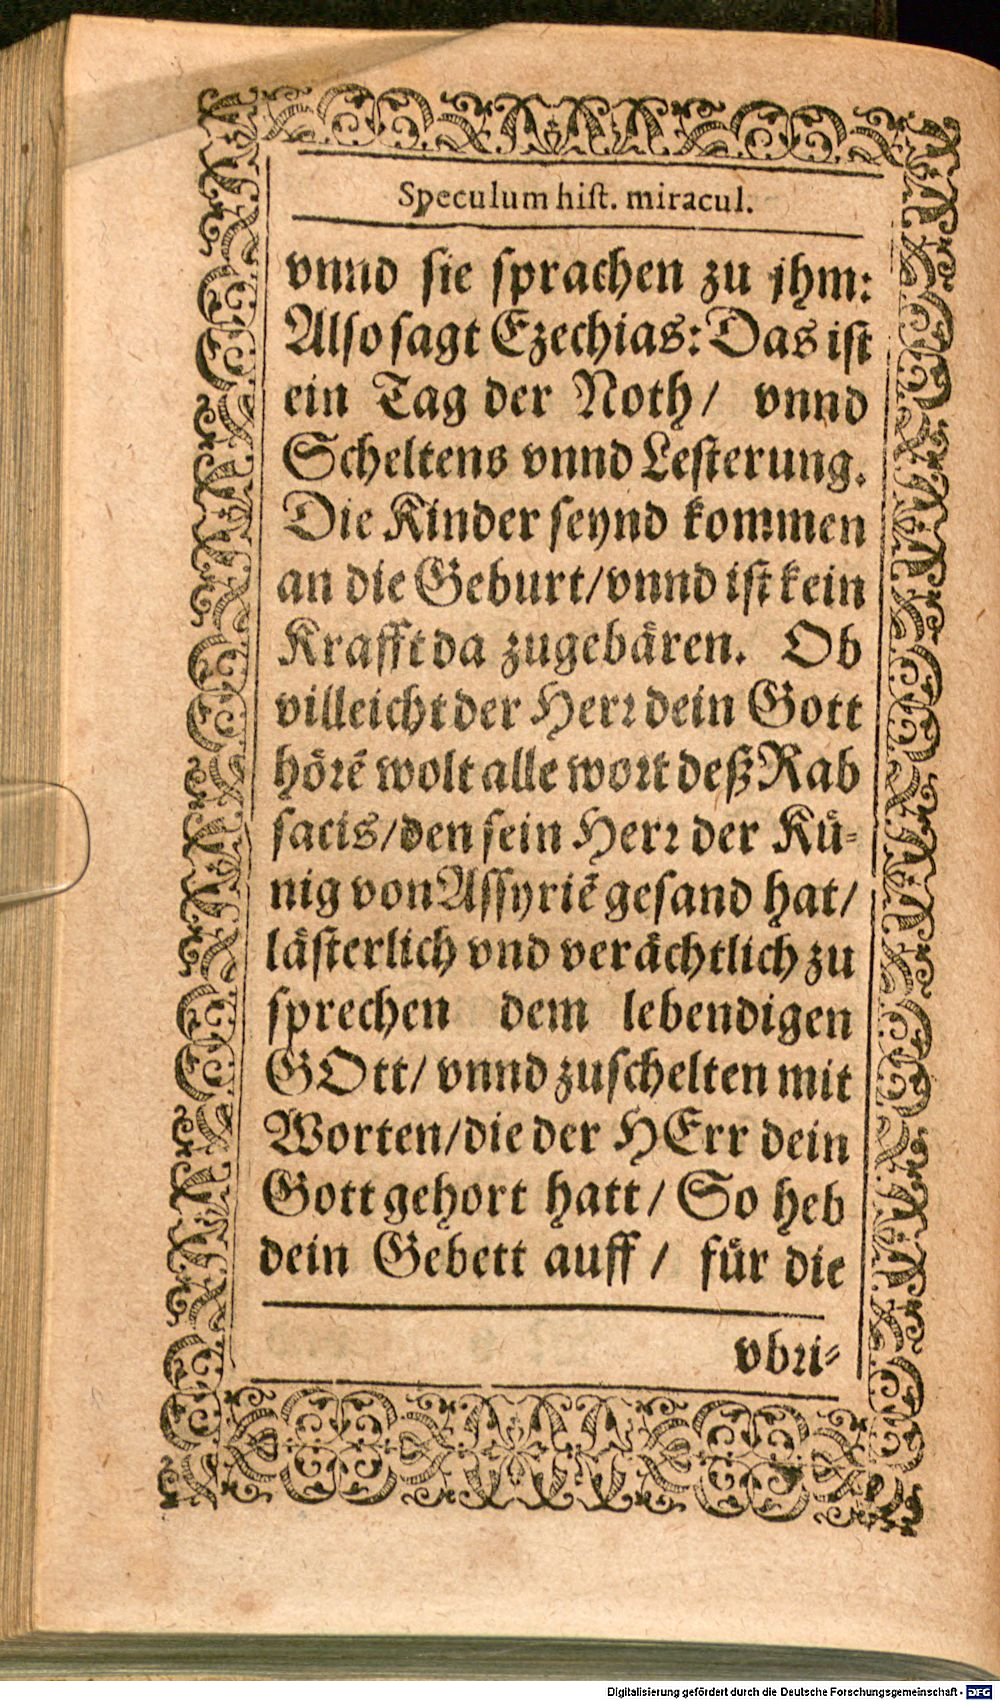 Speculum hist. miracul.
vnnd sie sprachen zu jhm:
Also sagt Ezechias: Das ist
ein Tag der Noth / vnnd
Scheltens vnnd Lesterung.
Die Kinder seynd kommen
an die Geburt / vnnd ist kein
Krafft da zugebären. Ob
villeicht der Herr dein Gott
hörẽ wolt alle wort deß Rab
sacis / den sein Herr der Kü-
nig von Assyriẽ gesand hat /
lästerlich vnd verächtlich zu
sprechen dem lebendigen
GOtt / vnnd zuschelten mit
Worten / die der HErr dein
Gott gehort hatt / So heb
dein Gebett auff / für die
vbri-
Digitalisierung gefördert durch die Deutsche Forschungsgemeinschaft - DFG